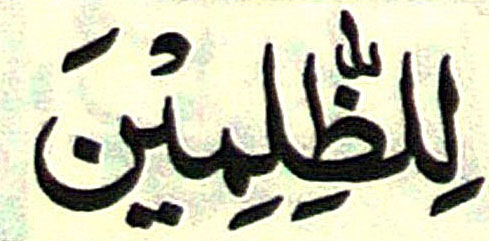 لِلظّٰلِمِيْنَ